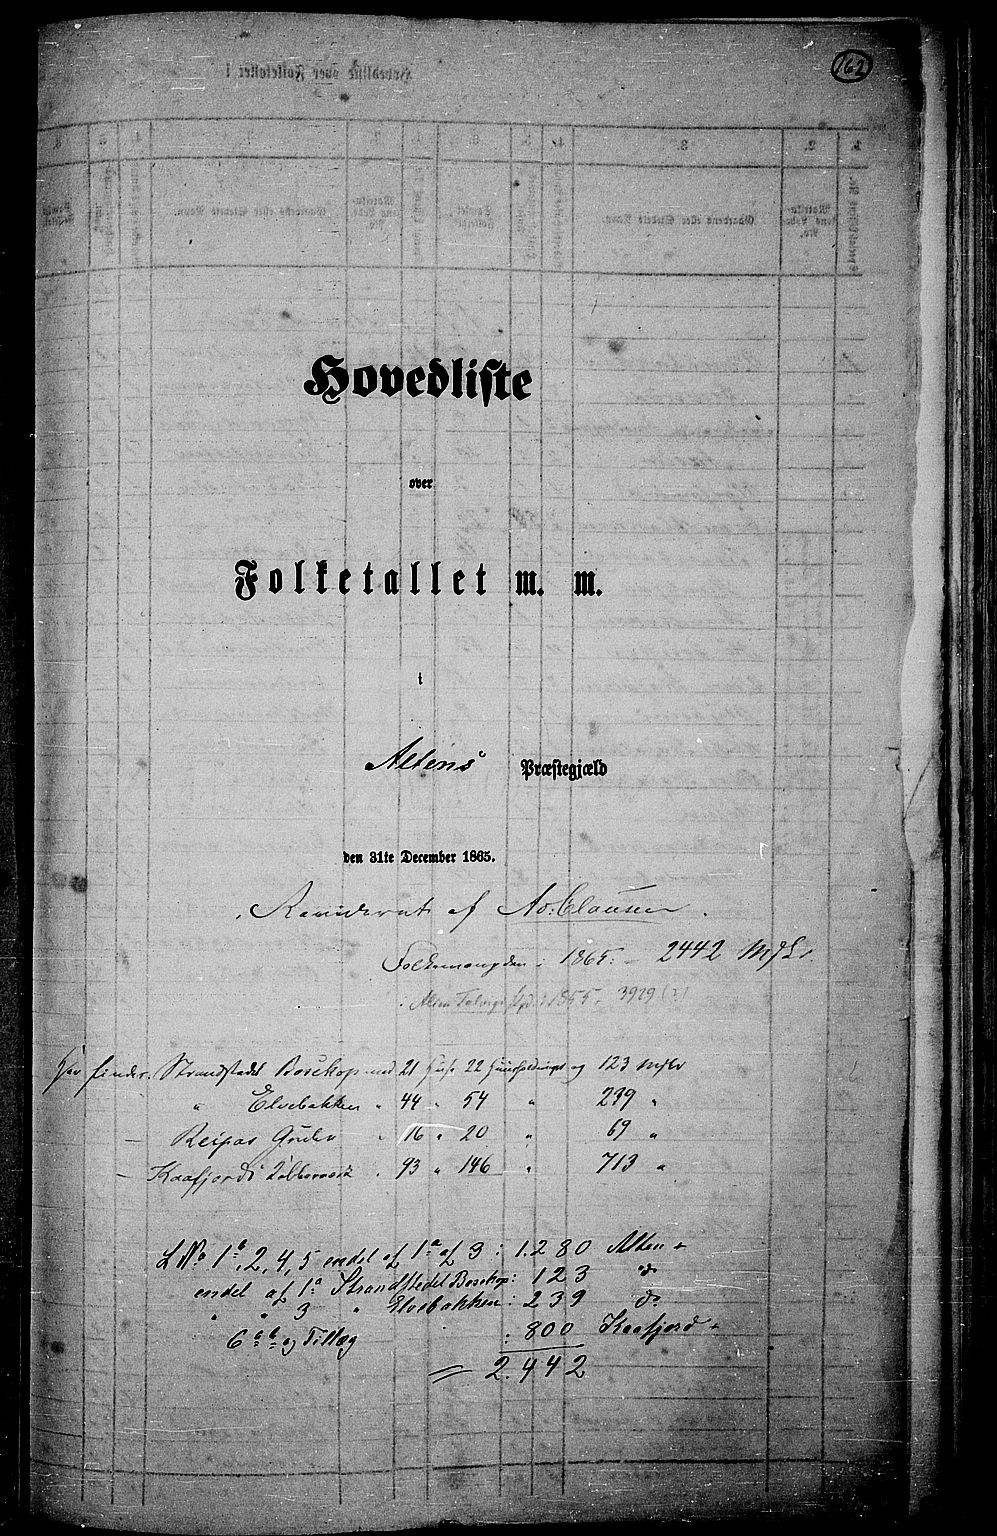 162
Hovedliste
over
Folketallet m. m.
i
Altens Præstegjæld
den 31te December 1865.
Revideret af Ao: Clausen.
Folkemængden i 1865: 2442 Msk.
Alten 1855: 3929 (?)
Her findes Strandstedet Bosekop med 21 Huse 22 Huusholdninger og 123 Msk
" Elvebakken " 44 " 54 " 239 "
– Reipas Gruber " 16 " 20 " 69 "
– Kaafjords Kobberværk " 93 " 146 " 713 "
L No 1b, 2, 4, 5 endel af 1a af 3 : 1.280 Alten
endel af 1a Strandstedet Bosekop: 123 do
" " 3 " Elvebakken : 239 do
6a b og Tillæg : 800 Kaafjord
2.442